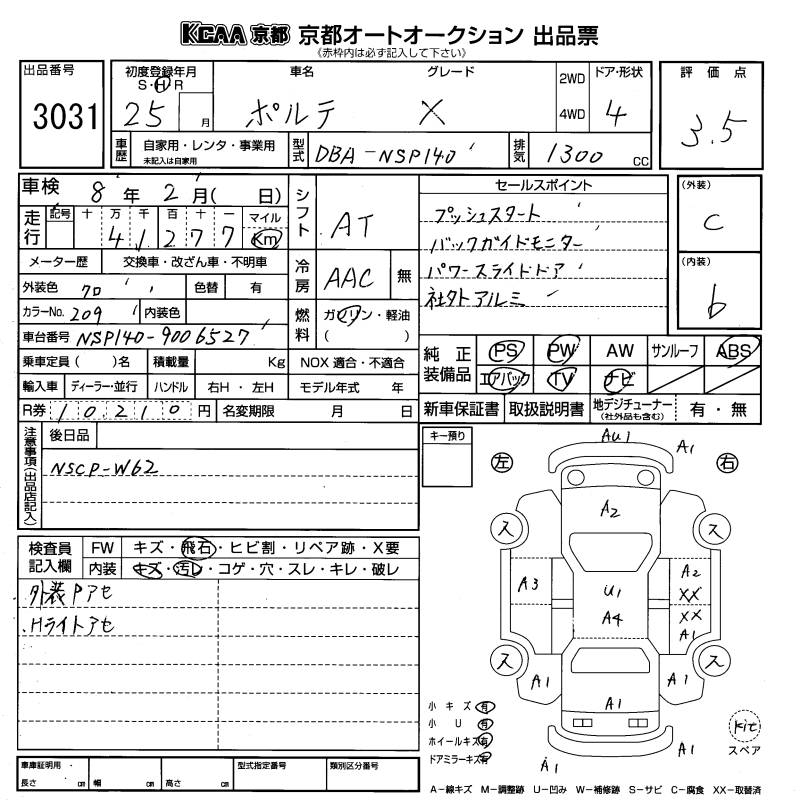 KCAA 京都 京都オートオークション 出品票
《赤枠内は必ず記入して下さい》
出品番号
3031
初度登録年月
S・H・R
25 月
車名
ポルテ
グレード
X
2WD
4WD
ドア・形状
4
評価点
3.5
車歴
自家用・レンタ・事業用
未記入は自家用
型式
DBA-NSP140
排気
1300 CC
車検 8年 2月( 日)
走行
記号 十 万 千 百 十 一 マイル
4 1 2 7 7 Km
メーター歴 交換車・改ざん車・不明車
外装色 クロ 色替 有
カラーNo. 209 内装色
車台番号 NSP140-9006527
乗車定員( )名 積載量 Kg NOX 適合・不適合
輸入車 ディーラー・並行 ハンドル 右H・左H モデル年式 年
R券 10210円 名変期限 月 日
シフト
AT
冷房
AAC 無
燃料
ガソリン・軽油
( )
セールスポイント
プッシュスタート
バックガイドモニター
パワースライドドア
社外アルミ
(外装)
C
(内装)
b
純正装備品
PS PW AW サンルーフ ABS
エアバック TV ナビ
新車保証書 取扱説明書 地デジチューナー(社外品も含む) 有・無
注意事項(出品店記入)
後日品
NSCP-W62
キー預り
検査員記入欄
FW キズ・飛石・ヒビ割・リペア跡・X要
内装 キズ・汚レ・コゲ・穴・スレ・キレ・破レ
外装Pアセ
.Hライトアセ
左
右
AU1
A1
A2
ス
ス
A3
U1
A4
A2
XX
XX
A1
ス
ス
A1
A1
A1
A1
A1
小キズ 有
小U 有
ホイールキズ 有
ドアミラーキズ 有
Kit
スペア
車庫証明用
長さ cm 幅 cm 高さ cm
型式指定番号
類別区分番号
A-線キズ M-調整跡 U-凹み W-補修跡 S-サビ C-腐食 XX-取替済